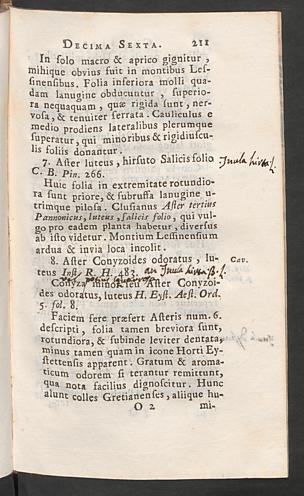 DECIMA SEXTA. 211
In solo macro & aprico gignitur,
mihique obvius fuit in montibus Les-
sinensibus. Folia inferiora molli qua-
dam lanugine obducuntur, superio-
ra nequaquam, quæ rigida sunt, ner-
vosa, & tenuiter serrata. Cauliculus e
medio prodiens lateralibus plerumque
superatur, qui minoribus & rigidiuscu-
lis foliis donantur.
7. Aster luteus, hirsuto Salicis folio Inula hirta L.
C. B. Pin. 266.
Huic folia in extremitate rotundio-
ra sunt priore, & subruffa lanugine u-
trimque pilosa. Clusianus Aster tertius
Pannonicus, luteus, salicis folio, qui vul-
go pro eadem planta habetur, diversus
ab isto videtur. Montium Lessinensium
ardua & invia loca incolit.
8. Aster Conyzoides odoratus, lu- CAV.
teus Inst. R. H. 483. an Inula hirta β. L.
Conyza minor seu Aster Conyzoi-
des odoratus, luteus H. Eyst. Æst. Ord.
5. fol. 8.
Faciem fere præfert Asteris num. 6.
descripti, folia tamen breviora sunt,
rotundiora, & subinde leviter dentata,
minus tamen quam in icone Horti Ey-
stettensis apparent. Gratum & aroma-
ticum odorem si terantur remittunt,
qua nota facilius dignoscitur. Hunc
alunt colles Gretianenses, aliique hu-
O 2 mi-